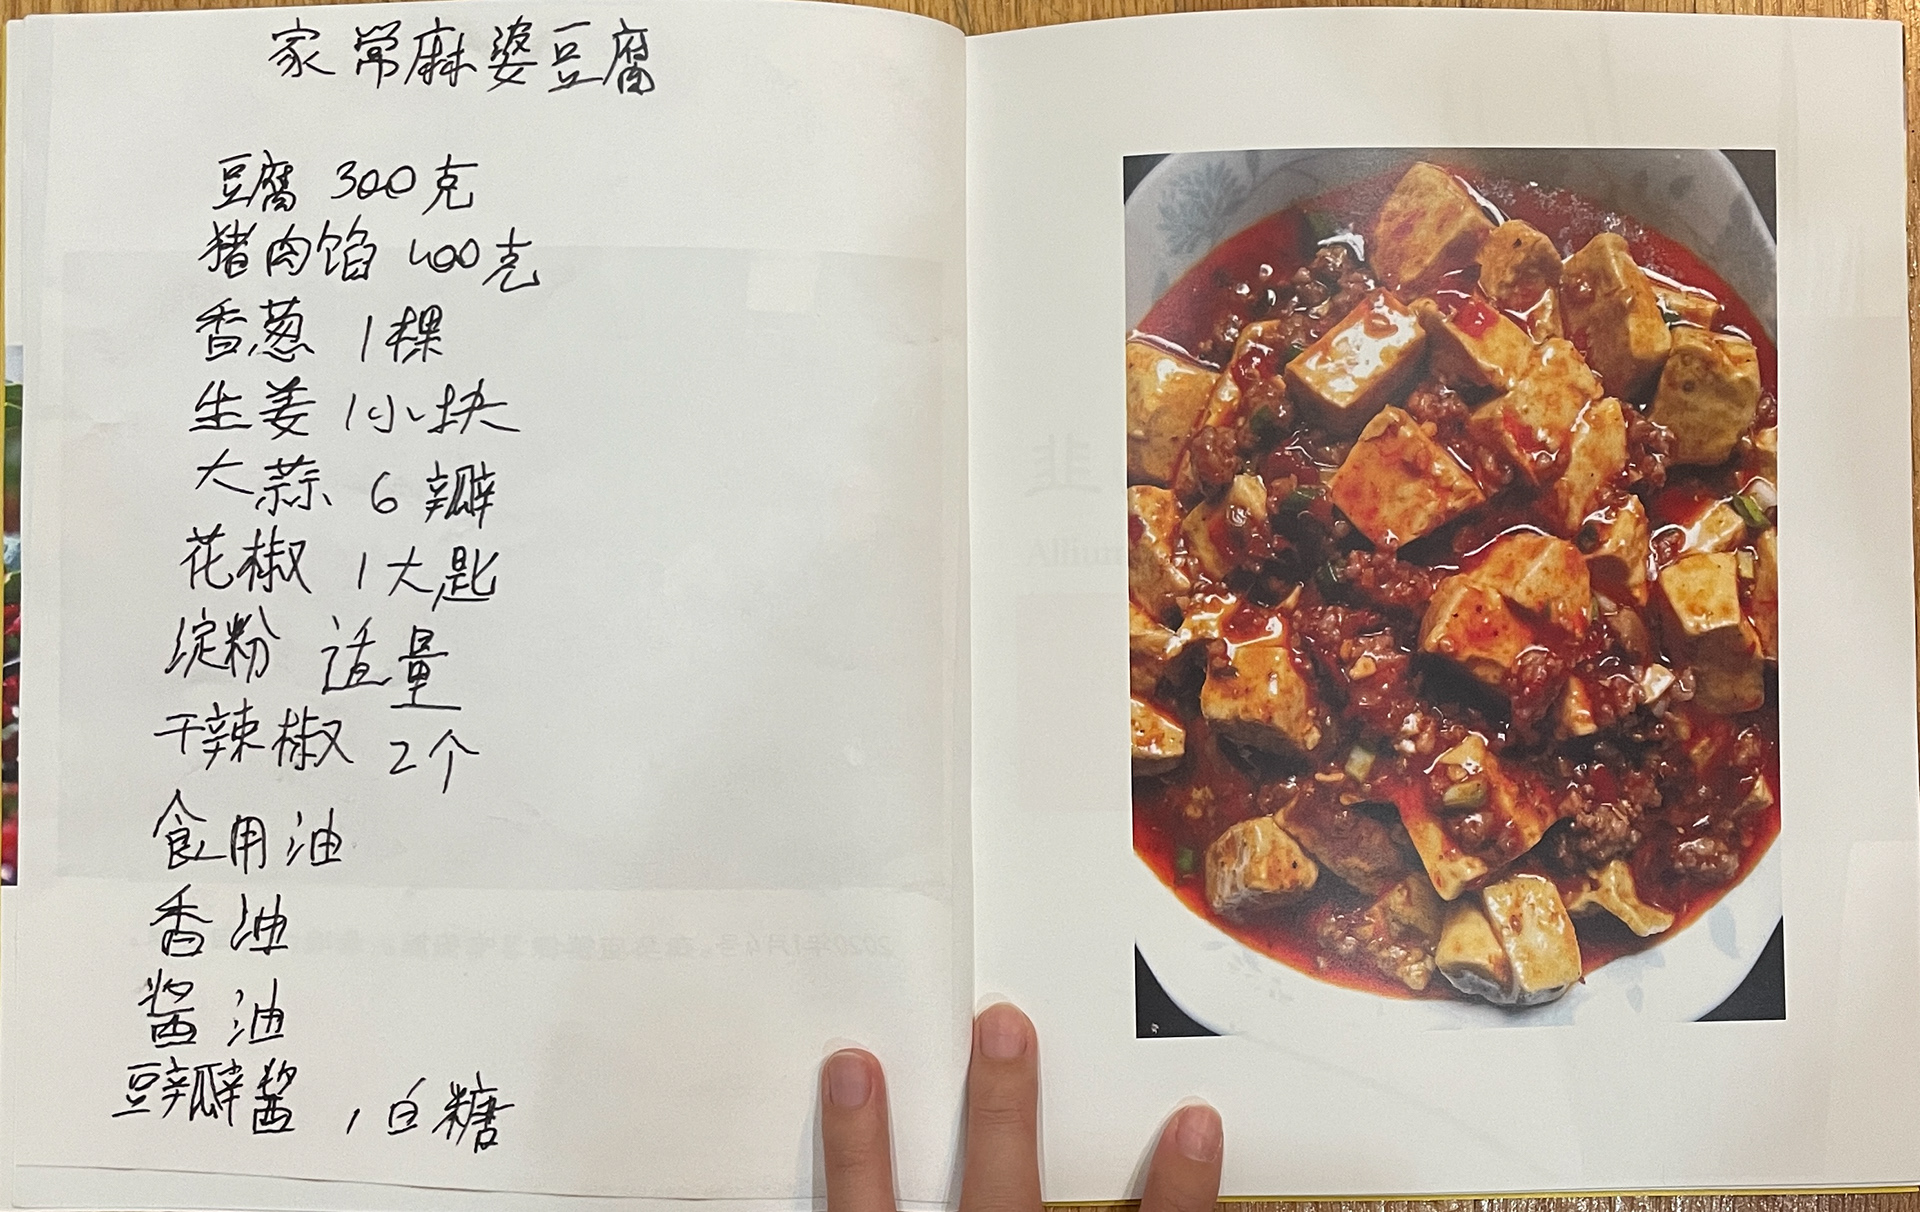 家常麻婆豆腐
豆腐 300克
猪肉馅 400克
香葱 1棵
生姜 1小块
大蒜 6瓣
花椒 1大匙
淀粉 适量
干辣椒 2个
食用油
香油
酱油
豆瓣酱,白糖
韭
Allium